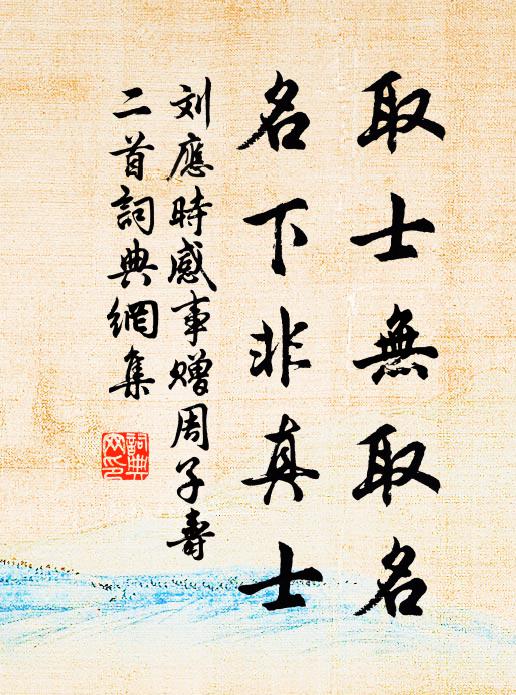 取士無取名
名下非真士
刘應時感事贈周子壽
二首詞典網集
詞典網印